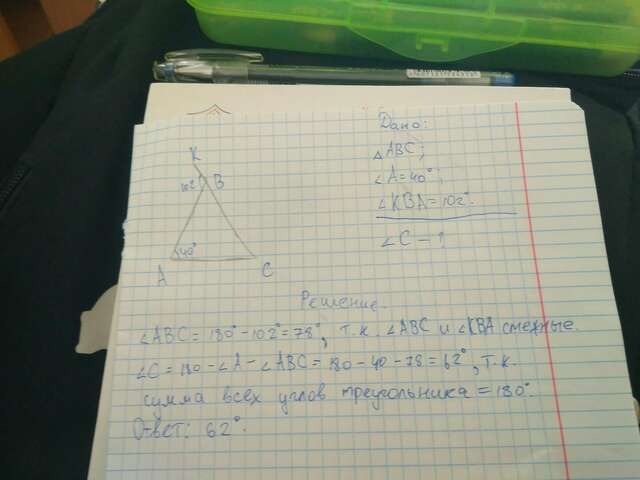 Дано:
△ABC;
∠A=40°;
∠KBA=102°.
∠C-?
K
102°
B
40°
A
C
Решение.
∠ABC=180°-102°=78°, т.к. ∠ABC и ∠KBA смежные.
∠C=180-∠A-∠ABC=180-40-78=62°, т.к.
сумма всех углов треугольника=180°.
Ответ: 62°.